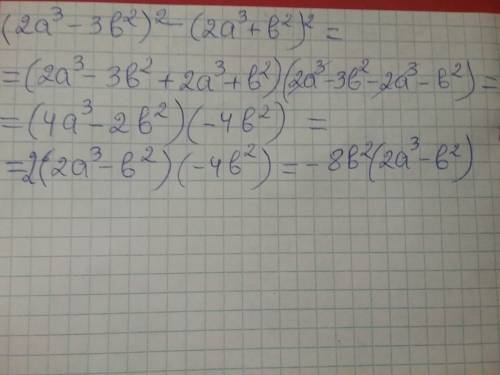 (2a³ - 3в²)² - (2a³ + в²)² =
= (2a³ - 3в² + 2a³ + в²)(2a³ - 3в² - 2a³ - в²) =
= (4a³ - 2в²)(-4в²) =
= 2(2a³ - в²)(-4в²) = - 8в²(2a³ - в²)